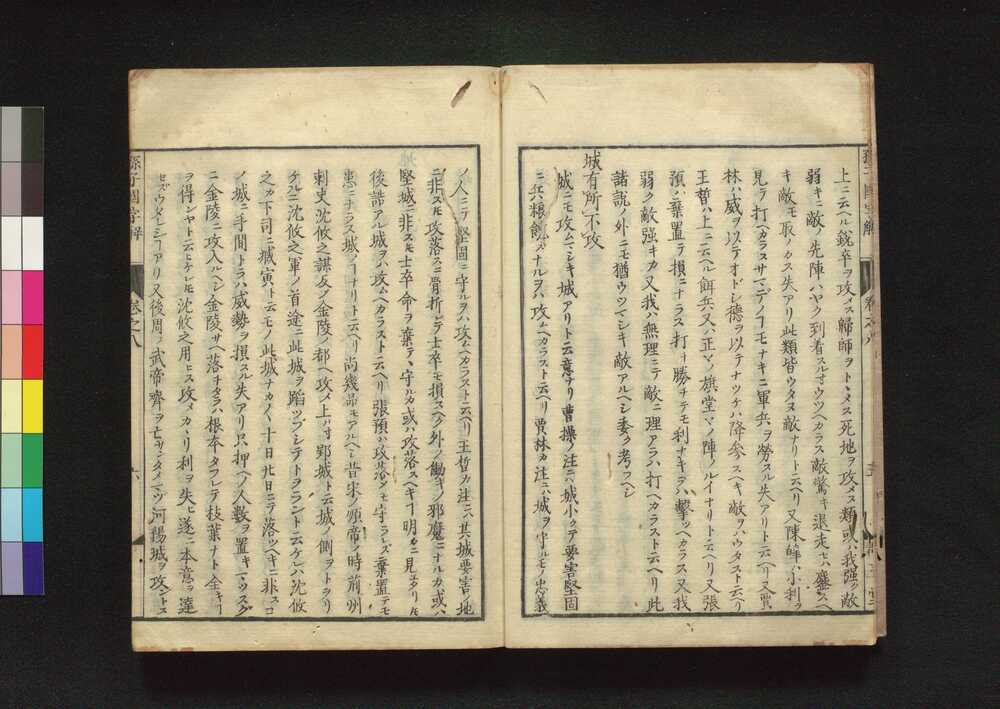 上ニ云ヘル鋭卒ヲ攻メス歸師ヲトヽメス死地ヲ攻メス類或ハ我強ク敵
弱キニ敵ノ先陣ハヤク到着スルヲウツヘカラス敵驚キ退走セハ
キ敵モ取ノカス失アリ此類皆ウタヌ敵ナリト云ヘリ又陳皥ハ小利ヲ
見テ打ヘカラスサマテノヿモナキニ軍兵ヲ勞スル失アリト云ヘリ又賈
林ハ威ヲ以テオドシ德ヲ以テナツケハ降参スヘキ敵ヲハウタスト云ヘリ
王晳ハ上ニ云ヘル餌兵又ハ正々ノ旗堂々ノ陣ノルイナリト云ヘリ又張
預ハ棄置テ損ニナラス打チ勝チテモ利ナキヲハ擊ツヘカラス又我
弱ク敵強キカ又我ハ無理ニテ敵ニ理アラハ打ヘカラスト云ヘリ此
諸說ノ外ニモ猶ウツマシキ敵アルヘシ委ク考フヘシ
城有所不攻
城ニモ攻ムマシキ城アリト云意ナリ曹操ノ注ニハ城小クテ要害堅固
ニ兵粮饒ナルヲハ攻ムヘカラスト云ヘリ賈林カ注ニハ城ヲ守ルモノ忠義
ノ人ニテ堅固ニ守ルヲハ攻ムヘカラスト云ヘリ王晳カ注ニハ其城要害ノ地
ニ非スルモ攻落スニ骨折レテ士卒モ損スヘク外ノ働キノ邪魔ニナルカ或ハ
堅城ニ非スルモ士卒命ヲ棄テヽ守ルカ或ハ攻落スヘキヿ明カニ見エタリトモ
後詰アル城ヲハ攻ムヘカラスト云ヘリ張預ハ攻落シテモ守ラレズ棄置テモ
患ニナラス城ノヿナリト云ヘリ尚幾品モアルヘシ昔宋ノ順帝ノ時荊州
刺史沈攸之謀反ノ金陵ノ都ヘ攻メ上ハ寸郢城ト云城ノ側ヲトヲリ
ケルニ沈攸之軍ノ首途ニ此城ヲ蹈ツブシテトヲラント云ケレハ沈攸
之カ下司ニ臧寅ト云モノ此城ナカ〳〵十日廿日ニテ落ツヘキニ非スコ
ノ城ニ手間トラハ威勢ヲ損スル失アリ只押ヘノ人數ヲ置キマツスグ
ニ金陵ニ攻入ルヘシ金陵サヘ落チタラハ根本タフレテ枝葉ナト全キヿ
ヲ得ンヤト云ヒケレトモ沈攸之用ヒス攻メカヽリ利ヲ失ヒ遂ニ本意ヲ達
セズウタイシヿアリ又後周ノ武帝齊ヲ亡サンタメマツ河陽城ヲ攻ントス
孫子國字解
卷之八
六